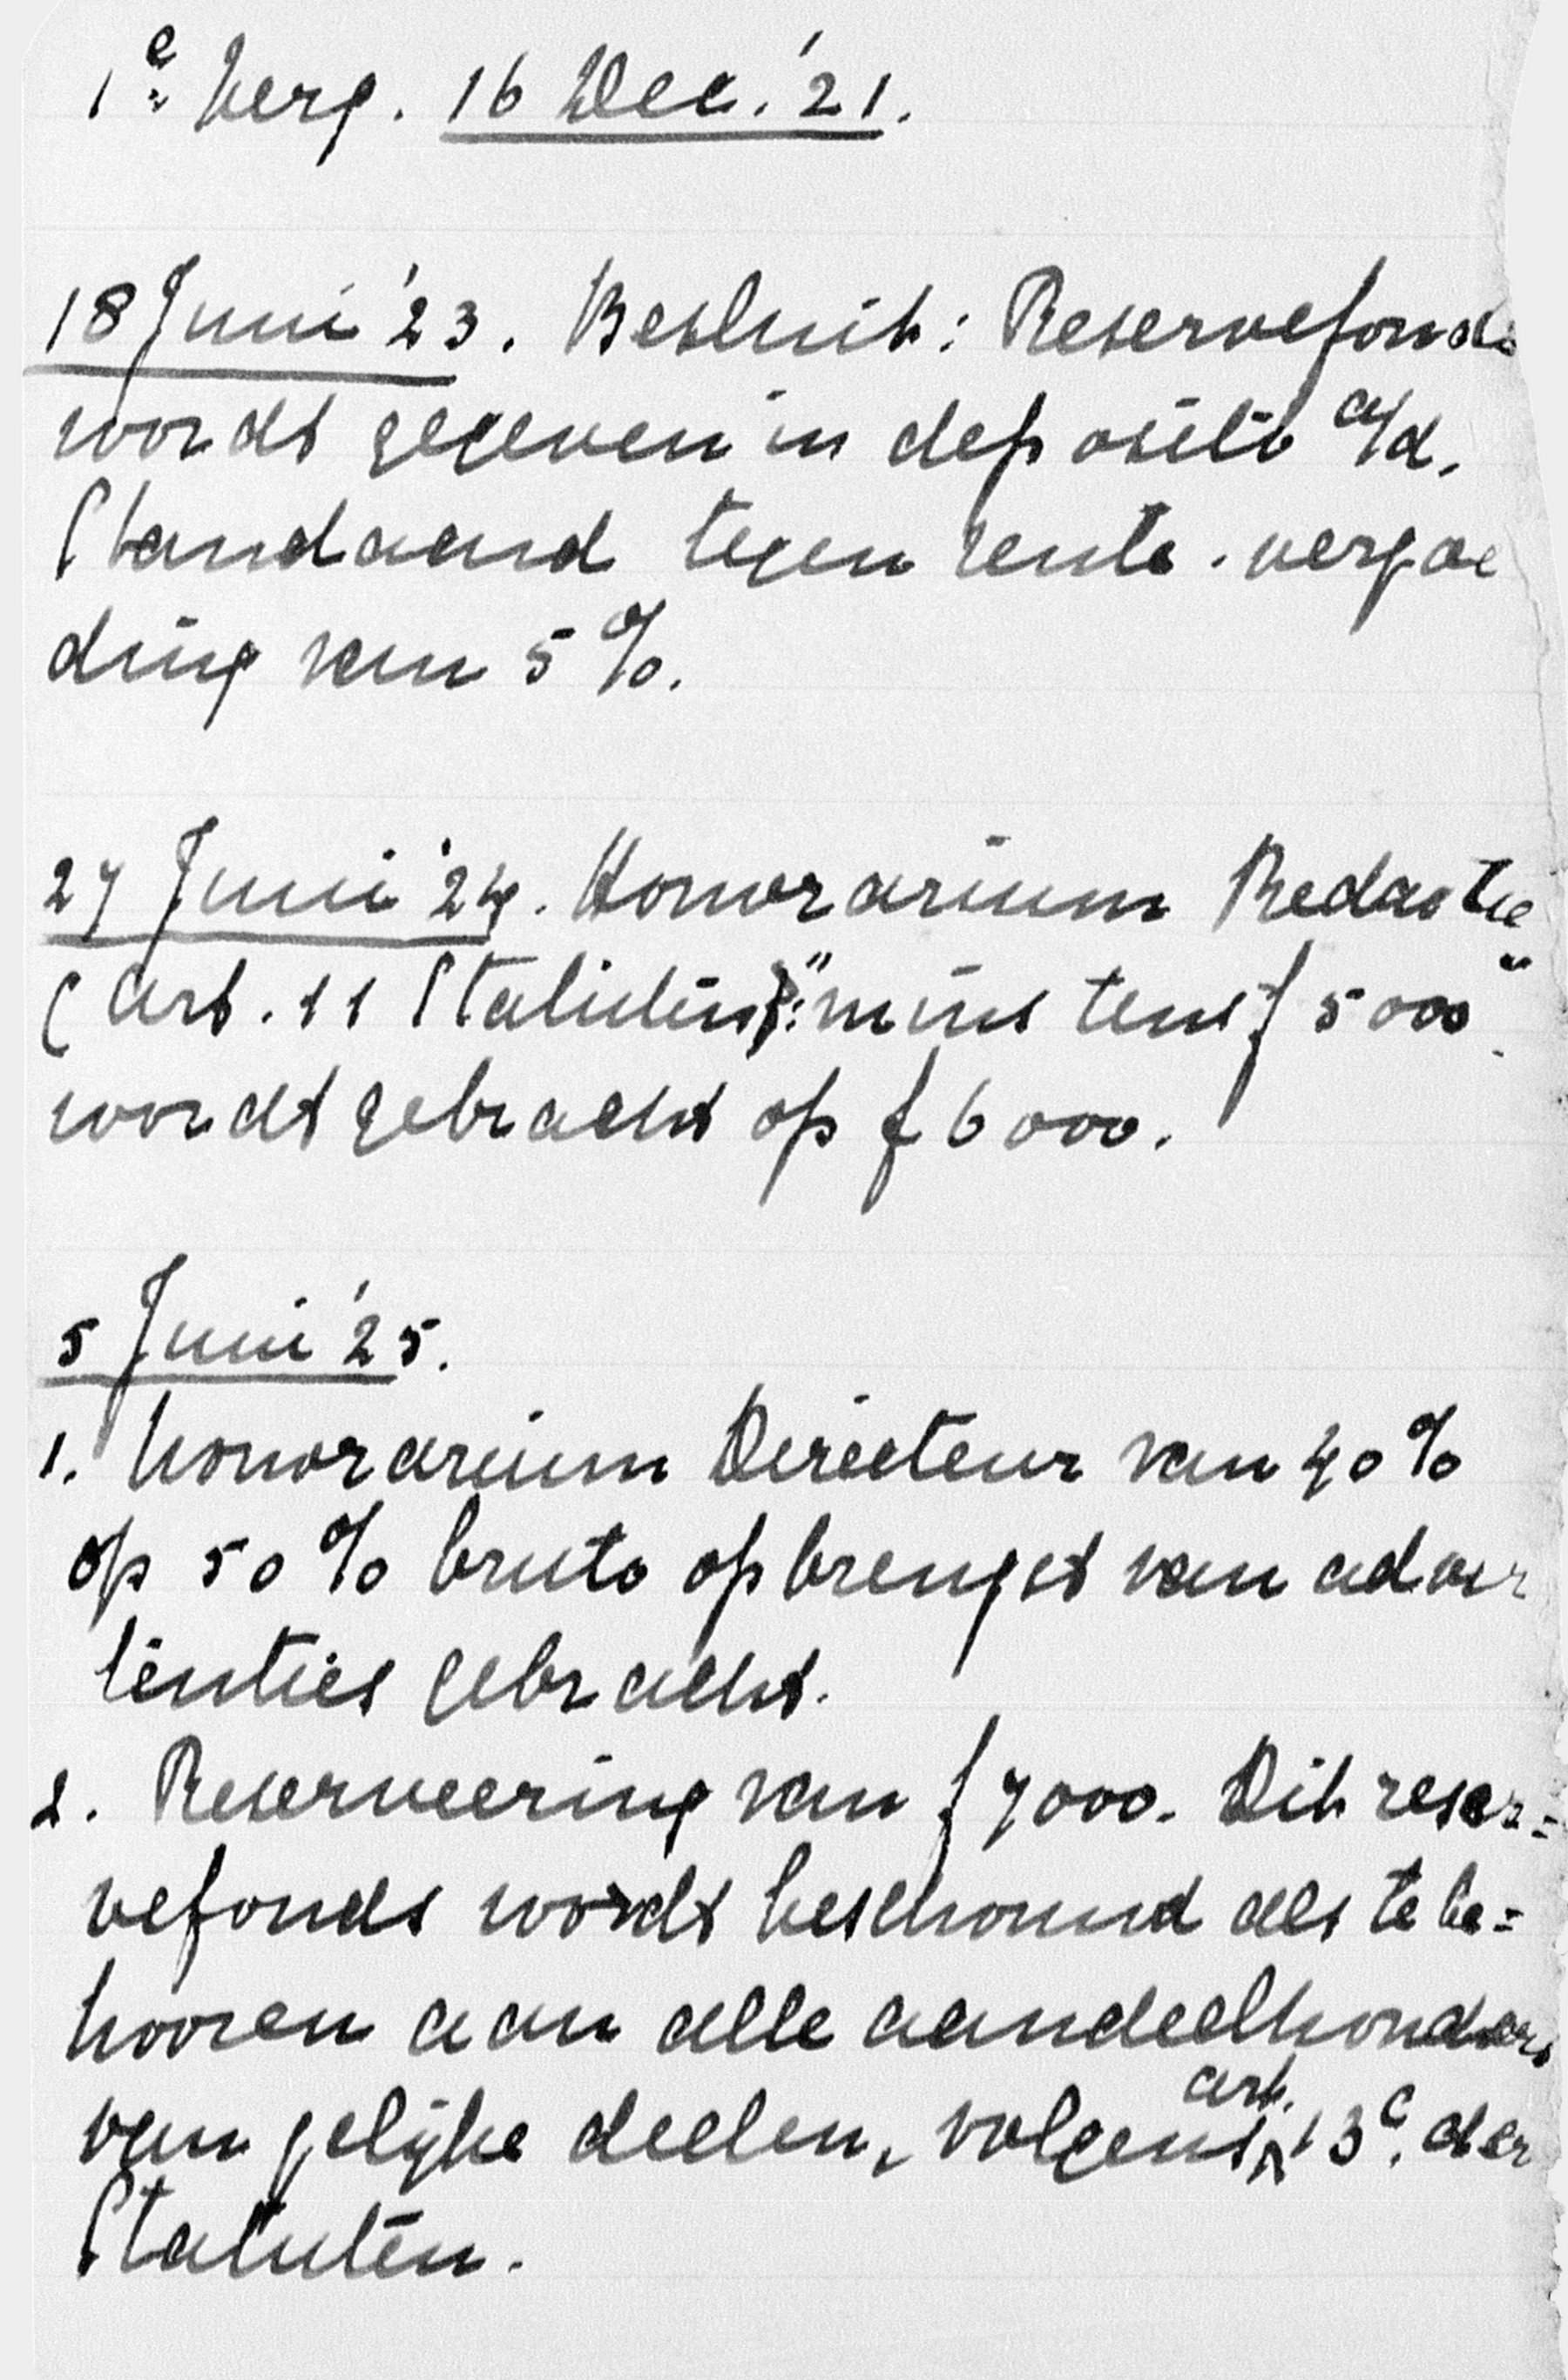 1e Verg. 16 Dec. '21.
18 Juni '23. Besluit: Reservefonds
wordt gegeven in deposito a/d.
Standaard tegen rente-vergoe
ding van 5%.
27 Juni '24. Honorarium Redactie
(art. 11 Statuten): "minstens f 5000"
wordt gebracht op f 6000.
5 Juni '25.
1. Honorarium Directeur van 40%
op 50% bruto opbrengst van adver
tenties gebracht.
2. Reserveering van f 7000. Dit reser=
vefonds wordt beschouwd als te be=
hooren aan alle aandeelhouders
van gelijke deelen, volgens art. 13c. der
Statuten.